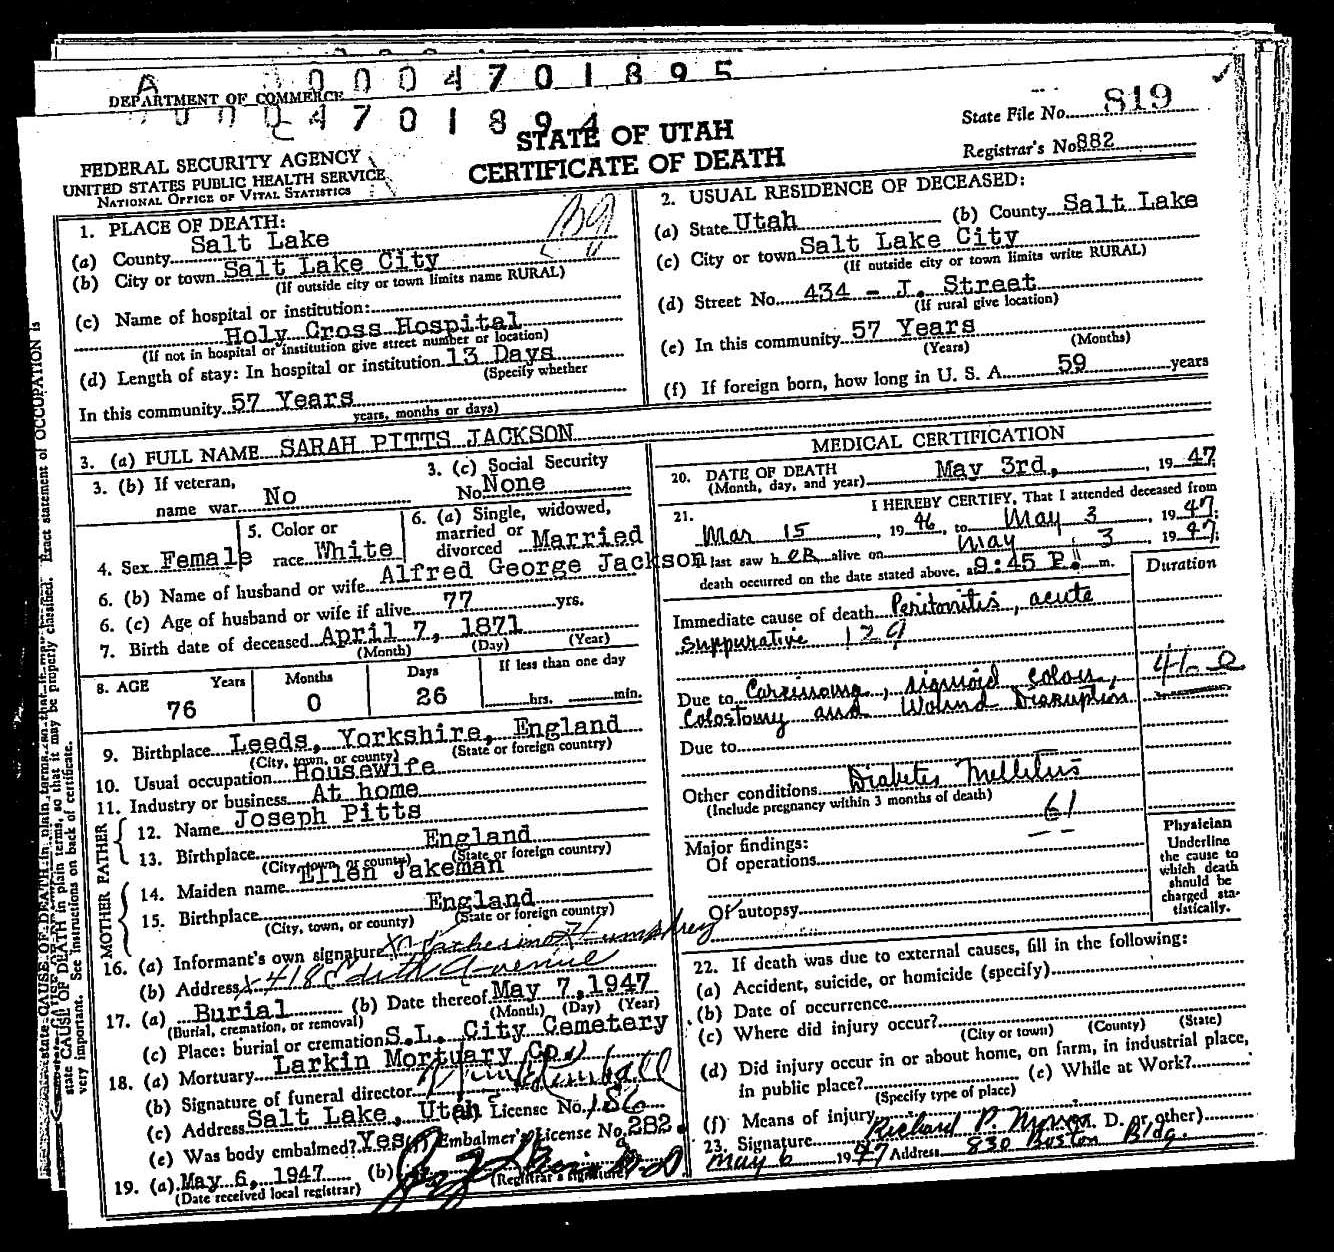 A 0004701895
DEPARTMENT OF COMMERCE
0004701894
C
STATE OF UTAH
CERTIFICATE OF DEATH
State File No. 819
Registrar's No. 882
FEDERAL SECURITY AGENCY
UNITED STATES PUBLIC HEALTH SERVICE
NATIONAL OFFICE OF VITAL STATISTICS
1. PLACE OF DEATH:
(a) County Salt Lake
(b) City or town Salt Lake City
(If outside city or town limits name RURAL)
(c) Name of hospital or institution:
Holy Cross Hospital
(If not in hospital or institution give street number or location)
(d) Length of stay: In hospital or institution 13 Days
(Specify whether
In this community 57 Years
years, months or days)
2. USUAL RESIDENCE OF DECEASED:
(a) State Utah (b) County Salt Lake
(c) City or town Salt Lake City
(If outside city or town limits write RURAL)
(d) Street No. 434 - J. Street
(If rural give location)
(e) In this community 57 Years
(Years) (Months)
(f) If foreign born, how long in U. S. A. 59 years
3. (a) FULL NAME SARAH PITTS JACKSON
3. (b) If veteran, name war No
3. (c) Social Security No. None
4. Sex Female
5. Color or race White
6. (a) Single, widowed, married or divorced Married
6. (b) Name of husband or wife Alfred George Jackson
6. (c) Age of husband or wife if alive 77 yrs.
7. Birth date of deceased April 7, 1871
(Month) (Day) (Year)
8. AGE Years Months Days If less than one day
76 0 26 hrs. min.
9. Birthplace Leeds, Yorkshire, England
(City, town, or county) (State or foreign country)
10. Usual occupation Housewife
11. Industry or business At home
FATHER
12. Name Joseph Pitts
13. Birthplace England
(City, town, or county) (State or foreign country)
MOTHER
14. Maiden name Ellen Jakeman
15. Birthplace England
(City, town, or county) (State or foreign country)
16. (a) Informant's own signature x Humphrey
(b) Address x 418 Edith Avenue
17. (a) Burial (b) Date thereof May 7, 1947
(Burial, cremation, or removal) (Month) (Day) (Year)
(c) Place: burial or cremation S.L. City Cemetery
18. (a) Mortuary Larkin Mortuary Co.
(b) Signature of funeral director
(c) Address Salt Lake, Utah License No. 186
(e) Was body embalmed? Yes Embalmer's License No. 282.
19. (a) May 6, 1947 (b)
(Date received local registrar) (Registrar's signature)
MEDICAL CERTIFICATION
20. DATE OF DEATH May 3rd, 1947
(Month, day, and year)
21. I HEREBY CERTIFY, That I attended deceased from
Mar 15 1946, to May 3 1947;
I last saw her alive on May 3 1947;
death occurred on the date stated above, at 9:45 P. m.
Duration
Immediate cause of death Peritonitis, acute
suppurative 129
Due to Carcinoma, sigmoid colon,
Colostomy and Wound Disruption
Due to
Other conditions Diabetes Mellitus
(Include pregnancy within 3 months of death)
61
Major findings:
Of operations
Of autopsy
Physician
Underline
the cause to
which death
should be
charged sta-
tistically.
22. If death was due to external causes, fill in the following:
(a) Accident, suicide, or homicide (specify)
(b) Date of occurrence
(c) Where did injury occur?
(City or town) (County) (State)
(d) Did injury occur in or about home, on farm, in industrial place,
in public place? (e) While at Work?
(Specify type of place)
(f) Means of injury
23. Signature Richard P. (M. D. or other)
May 6 1947 Address 830 Boston Bldg.
state CAUSE OF DEATH in plain terms, so that it may be properly classified. Exact statement of OCCUPATION is
very important. See instructions on back of certificate.